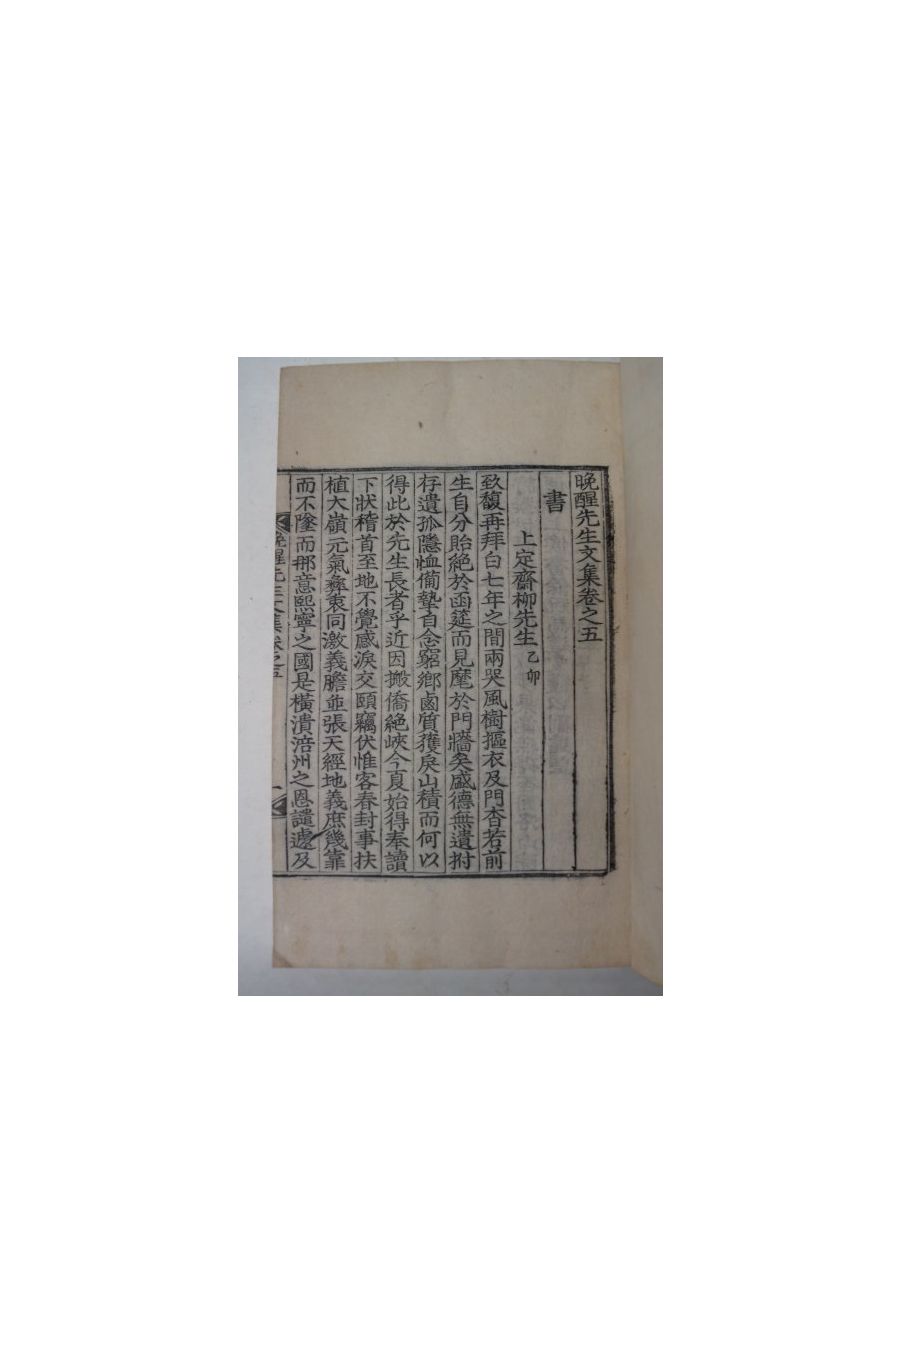 晩醒先生文集卷之五
書
上定齋柳先生 乙卯
致馥再拜白七年之間兩哭風樹摳衣及門杳若前
生自分貽絶於函筵而見麾於門牆矣盛德無遺拊
存遺孤隱恤備摯自念窮鄕鹵質獲戾山積而何以
得此於先生長者乎近因搬僑絶峽今夏始得奉讀
下狀稽首至地不覺感淚交頤竊伏惟客春封事扶
植大嶺元氣彝衷同激義膽並張天經地義庶幾靠
而不墜而那意熙寧之國是橫潰涪州之恩譴遽及
晩醒先生文集卷之五
一